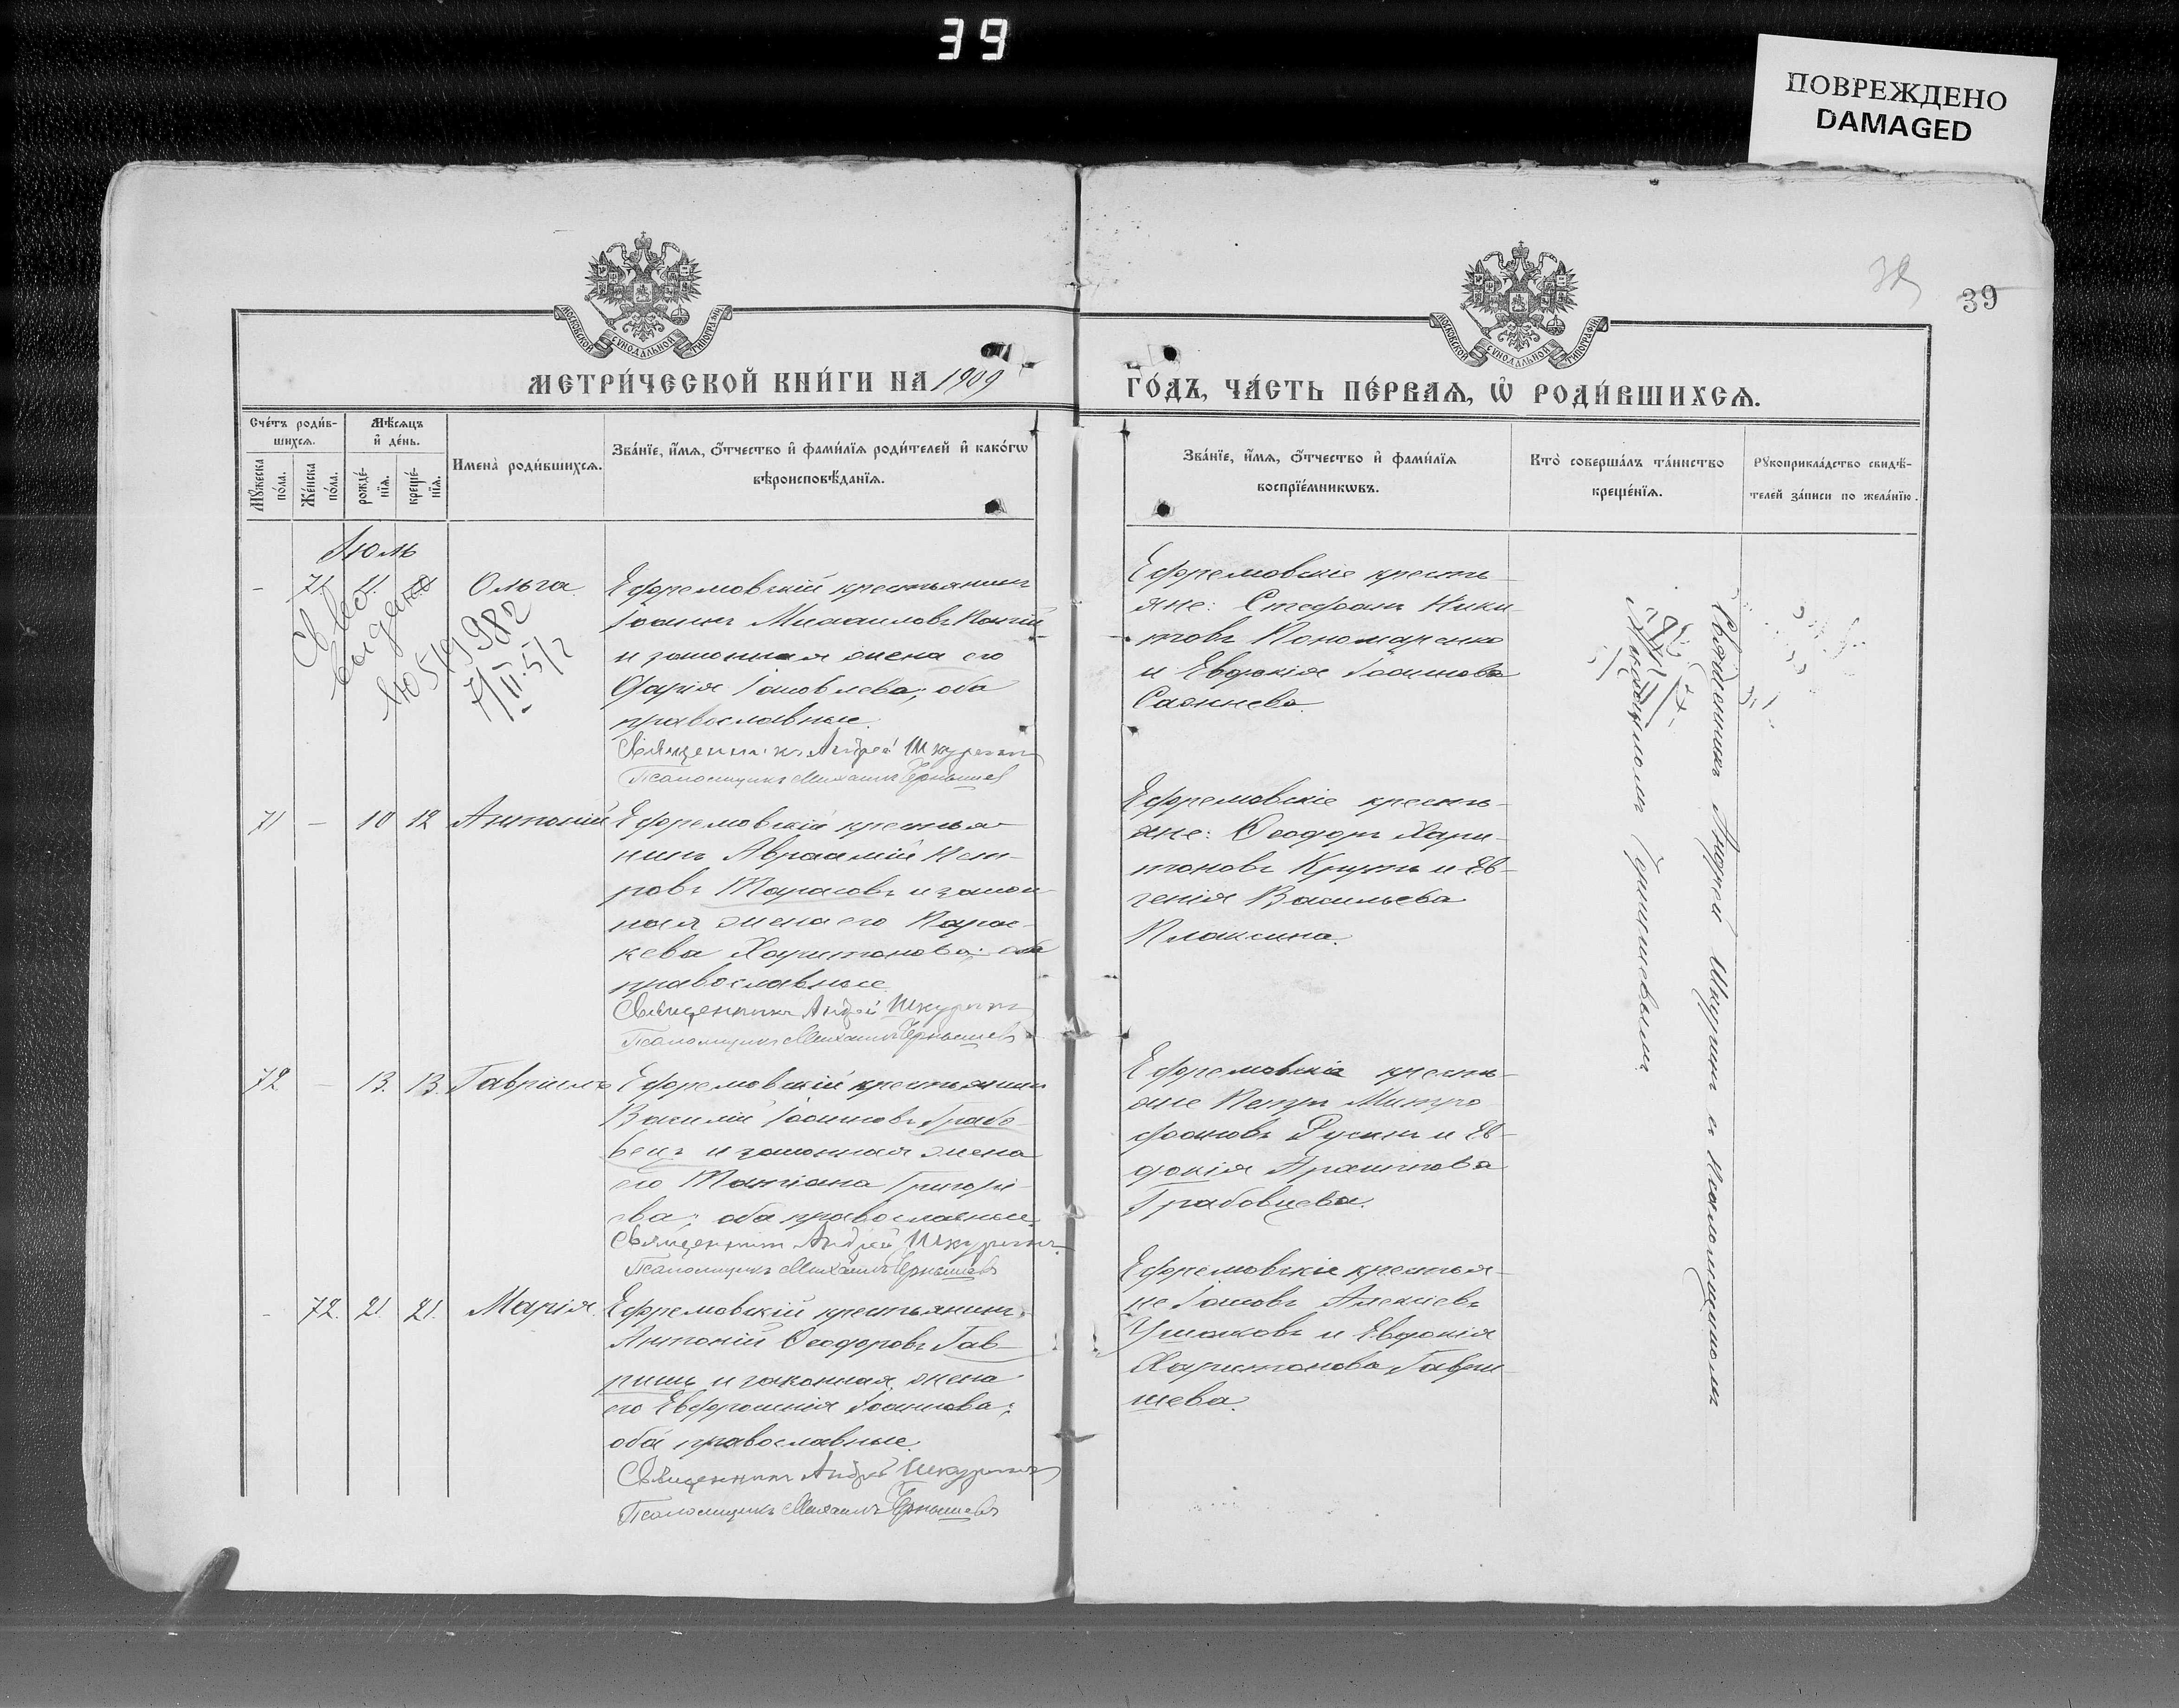 39
ПОВРЕЖДЕНО
DAMAGED
39
МОСКОВСКОЙ СѴНОДАЛЬНОЙ ТИПОГРАФІИ
МОСКОВСКОЙ СѴНОДАЛЬНОЙ ТИПОГРАФІИ
МЕТРИ́ЧЕСКОЙ КНИ́ГИ НА 1909
ГО́ДЪ, ЧА́СТЬ ПЕ́РВАѦ, Ѡ҆ РОДИ́ВШИХСѦ.
Сче́тъ роди́в-
шихсѧ.
Мꙋ́жеска по́ла.
Же́нска по́ла.
Мѣ́сѧцъ
и҆ де́нь.
рожде́-
нїѧ.
креще́-
нїѧ.
Имена̀ роди́вшихсѧ.
Зва́нїе, и҆́мѧ, ѻ҆́тчество и҆ фами́лїѧ роди́телей и҆ како́гѡ
вѣроисповѣ́данїѧ.
Зва́нїе, и҆́мѧ, ѻ҆́тчество и҆ фами́лїѧ
воспрїе́мникѡвъ.
Кто̀ соверша́лъ та́инство
креще́нїѧ.
Рꙋкоприкла́дство свидѣ́-
телей за́писи по жела́нїю.
Іюль
- 71. Ольга
Ефремовскій крестьянинъ
Іоаннъ Михаиловъ
и законная жена его
Марія Іаковлева; оба
православные.
Священникъ Андрей Шкуринъ
Псаломщикъ Михаилъ Чернышевъ
Св-во
выдано
982
Ефремовскіе кресть-
яне: Стефанъ Ники-
товъ Пономаренко
и Евдокія Іоаннова
71 – 10 12 Антоній
Ефремовскій крестья-
нинъ Авраамій Пет-
ровъ Тарасовъ и закон-
ная жена его Парас-
кева Харитонова; оба
православные.
Священникъ Андрей Шкуринъ
Псаломщикъ Михаилъ Чернышевъ
Ефремовскіе кресть-
яне: Ѳеодоръ Хари-
тоновъ Круть и Ев-
генія Васильева
Плаксина.
72 – 13. 13. Гавріилъ
Ефремовскій крестьянинъ
Василій Іоанновъ Грабо-
вецъ и законная жена
его Татіана Григорі-
ева; оба православные.
Священникъ Андрей Шкуринъ
Псаломщикъ Михаилъ Чернышевъ
Ефремовскіе кресть-
яне Петръ Митро-
фановъ Русинъ и Ев-
докія
Грабовцева.
- 72. 21. 21. Марія
Ефремовскій крестьянинъ
Антоній Ѳеодоровъ Гав-
ришъ и законная жена
его Евфросинія Іоаннова;
оба православные.
Священникъ Андрей Шкуринъ
Псаломщикъ Михаилъ Чернышевъ
Ефремовскіе крестья-
не Іаковъ Алексіевъ
Ушаковъ и Евдокія
Харитонова Гаври-
шева.
Священникъ Андрей Шкуринъ и Псаломщикомъ